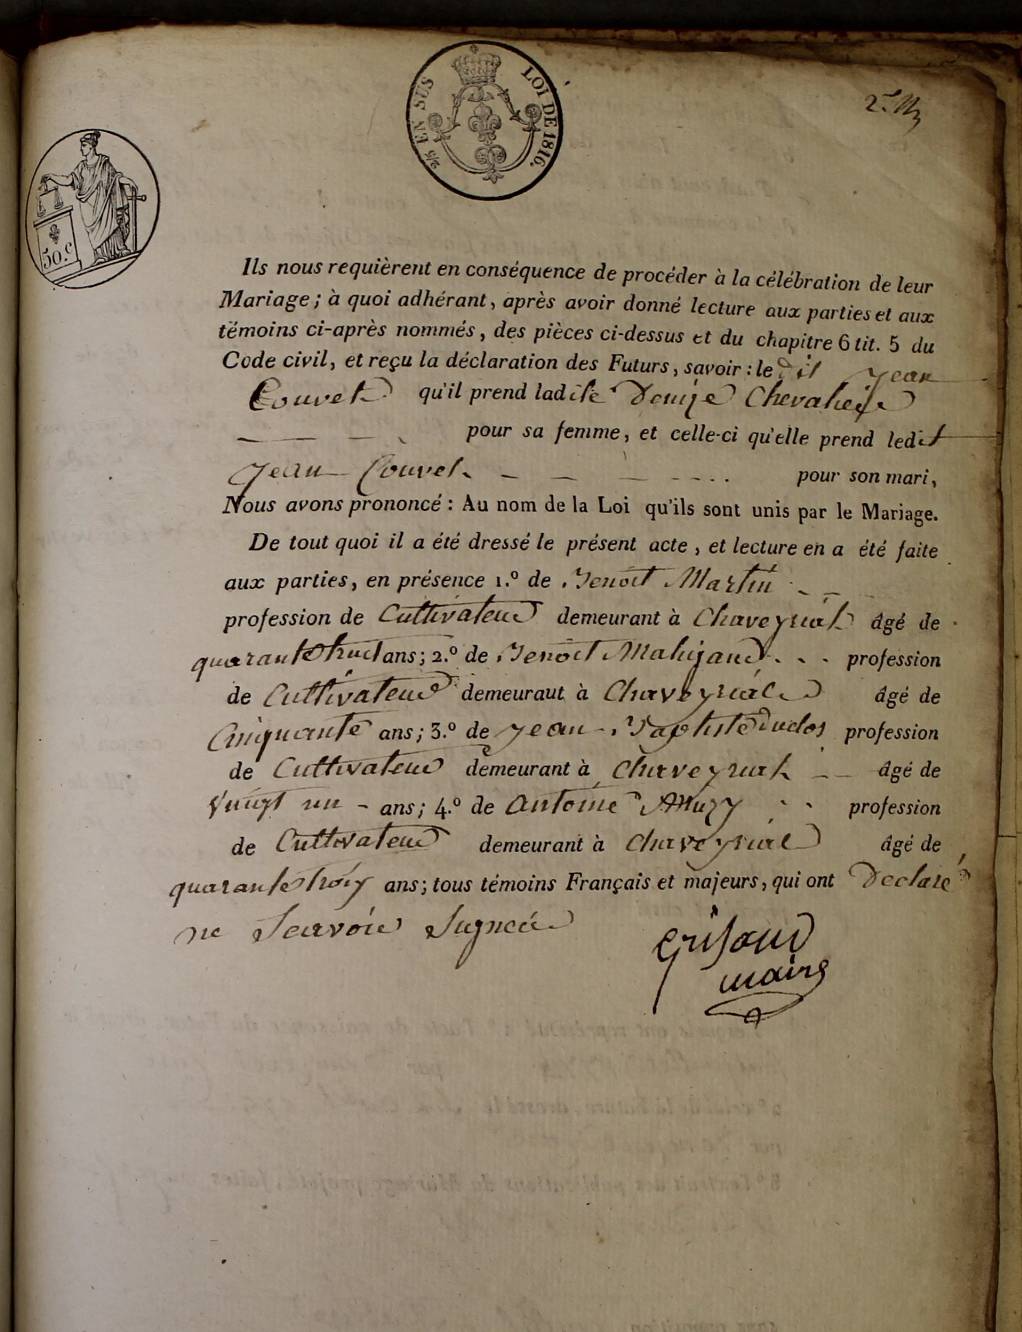 2/5 EN SUS LOI DE 1816.
50.c
Ils nous requièrent en conséquence de procéder à la célébration de leur
Mariage ; à quoi adhérant, après avoir donné lecture aux parties et aux
témoins ci-après nommés, des pièces ci-dessus et du chapitre 6 tit. 5 du
Code civil, et reçu la déclaration des Futurs, savoir : le dit jean
Couvet qu'il prend ladite Denise Chevalier
pour sa femme, et celle-ci qu'elle prend ledit
jean Couvet pour son mari,
Nous avons prononcé : Au nom de la Loi qu'ils sont unis par le Mariage.
De tout quoi il a été dressé le présent acte, et lecture en a été faite
aux parties, en présence 1.º de Benoit Martin
profession de Cultivateur demeurant à Chaveyriat âgé de
quarante huit ans ; 2.º de Benoit profession
de Cultivateur demeuraut à Chaveyriat âgé de
Cinquante ans ; 3.º de jean Baptiste Duclos profession
de Cultivateur demeurant à Chaveyriat âgé de
Vingt un ans ; 4.º de antoine profession
de Cultivateur demeurant à Chaveyriat âgé de
quarante trois ans ; tous témoins Français et majeurs, qui ont Declaré
ne Scavoir Signer
maire